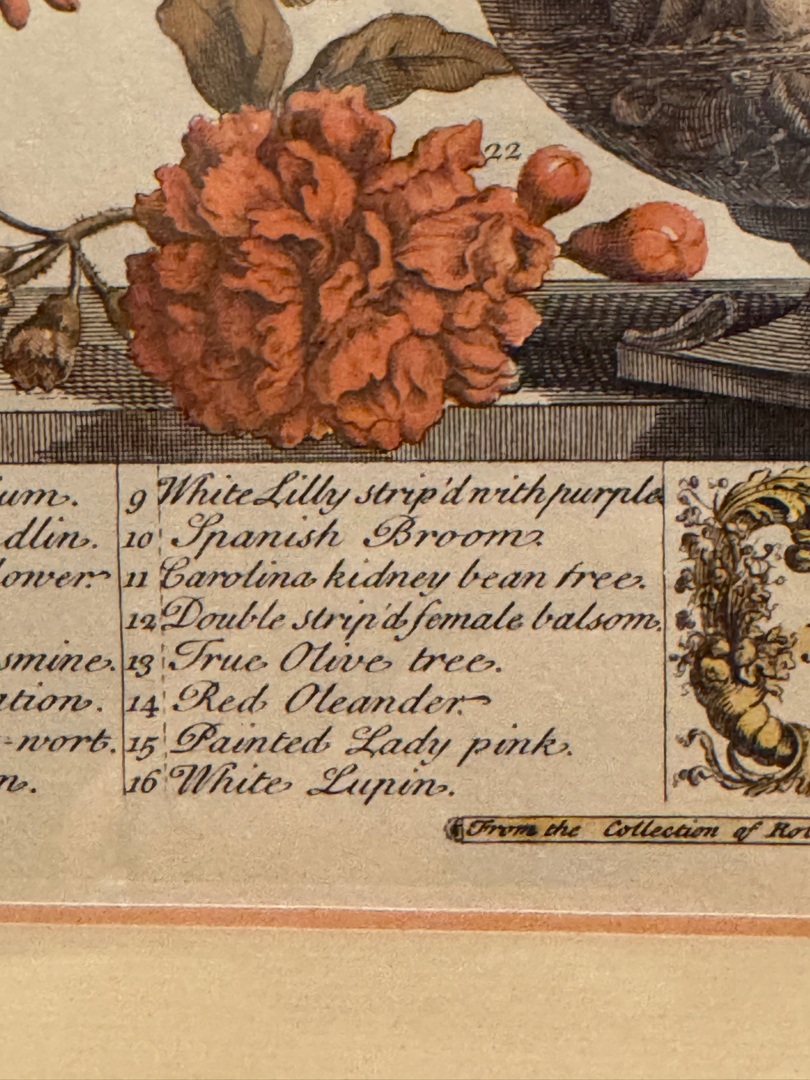 22
um.
dlin.
lower.
smine.
ation.
-wort.
n.
9 White Lilly strip'd with purple
10 Spanish Broom.
11 Carolina kidney bean tree.
12 Double strip'd female balsom.
13 True Olive tree.
14 Red Oleander.
15 Painted Lady pink.
16 White Lupin.
From the Collection of Ro